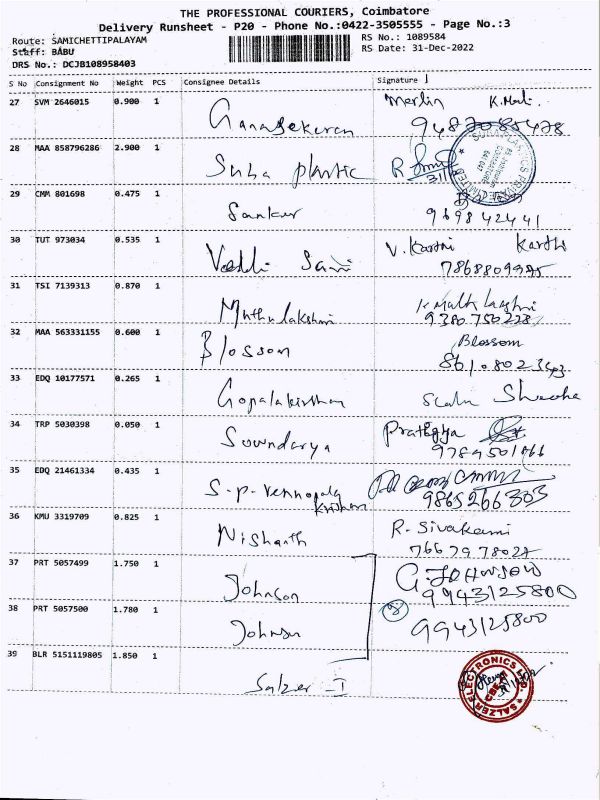 THE PROFESSIONAL COURIERS, Coimbatore
Delivery Runsheet - P20 - Phone No.:0422-3505555 - Page No.:3
Route: SAMICHETTIPALAYAM
RS No.: 1089584
Staff: BABU
RS Date: 31-Dec-2022
DRS No.: DCJB108958403
S No Consignment No Weight PCS Consignee Details Signature
27 SVM 2646015 0.900 1 Ganasekaran Merlin K.Mali
28 MAA 858796286 2.900 1 Suba plastic R
29 CMM 801698 0.475 1 Sankar 969842441
30 TUT 973034 0.535 1 V. Karthi Karthi
31 TSI 7139313 0.870 1 Muthulakshmi
9380750228
32 MAA 563331155 0.600 1 Blossom Blossom
33 EDQ 10177571 0.265 1 Gopalakrishnan
34 TRP 5030398 0.050 1 Soundarya
35 EDQ 21461334 0.435 1 S.P. Vennopala
Krishnan 9865266303
36 KMU 3319709 0.825 1 Nishanth R. Sivakami
37 PRT 5057499 1.750 1 Johnson G. JOHNSON
9943125800
38 PRT 5057500 1.780 1 Johnson 9943125800
39 BLR 5151119805 1.850 1 Salzer - I
SALZER ELECTRONICS LTD.